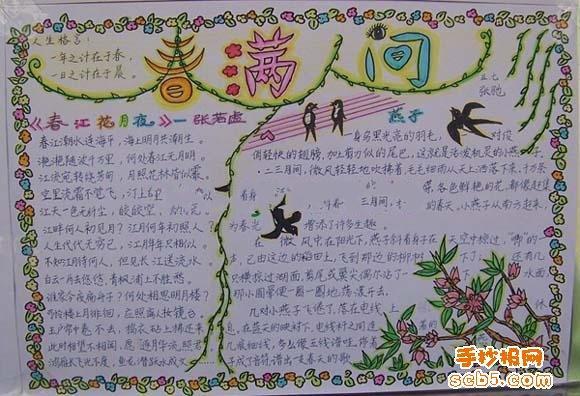 人生格言:
一年之计在于春,
一日之计在于晨。
春满间
五七
张弛
《春江花月夜》—张若虚
春江潮水连海平,海上明月共潮生。
滟滟随波千万里,何处春江无月明。
江流宛转绕芳甸,月照花林皆似霰。
空里流霜不觉飞,汀上
江天一色无纤尘,皎皎空
江畔何人初见月?江月何年初照人?
人生代代无穷已,江月年年只相似。
不知江月待何人,但见长江送流水。
白云一片去悠悠,青枫浦上不胜愁。
谁家今夜扁舟子?何处相思明月楼?
月徘徊,应照离人妆镜台。
玉户帘中卷不去,捣衣砧上拂还来。
此时相望不相闻,愿逐月华流照君。
鸿雁长飞光不度,鱼龙潜跃水成文
燕子
一身乌黑光亮的羽毛,一对俊
俏轻快的翅膀,加上剪刀似的尾巴,这就是活泼机灵的小燕子。
二三月间,微风轻轻地吹拂着,毛毛细雨从天上洒落下来,千万条
带各色鲜艳的花,都像赶集
着身
三月间,
的春天,小燕子从南方赶来,
为春光
增添了许多生趣。
在微风中在阳光下,燕子斜着身子在天空中掠过,“唧”的一
,已由这边的稻田上,飞到那边的柳树
下了
还有几
只横掠过湖面,剪尾或翼尖偶尔沾了
水面
那小圆晕便一圈一圈地荡漾开去。
几对小燕子飞倦了,落在电线上
休
息,在蓝天的映衬下,电线杆之间连
几痕细线,多么像五线谱哇,停着
子成了音符,谱出一支春天的歌
手抄报网
scb5.com